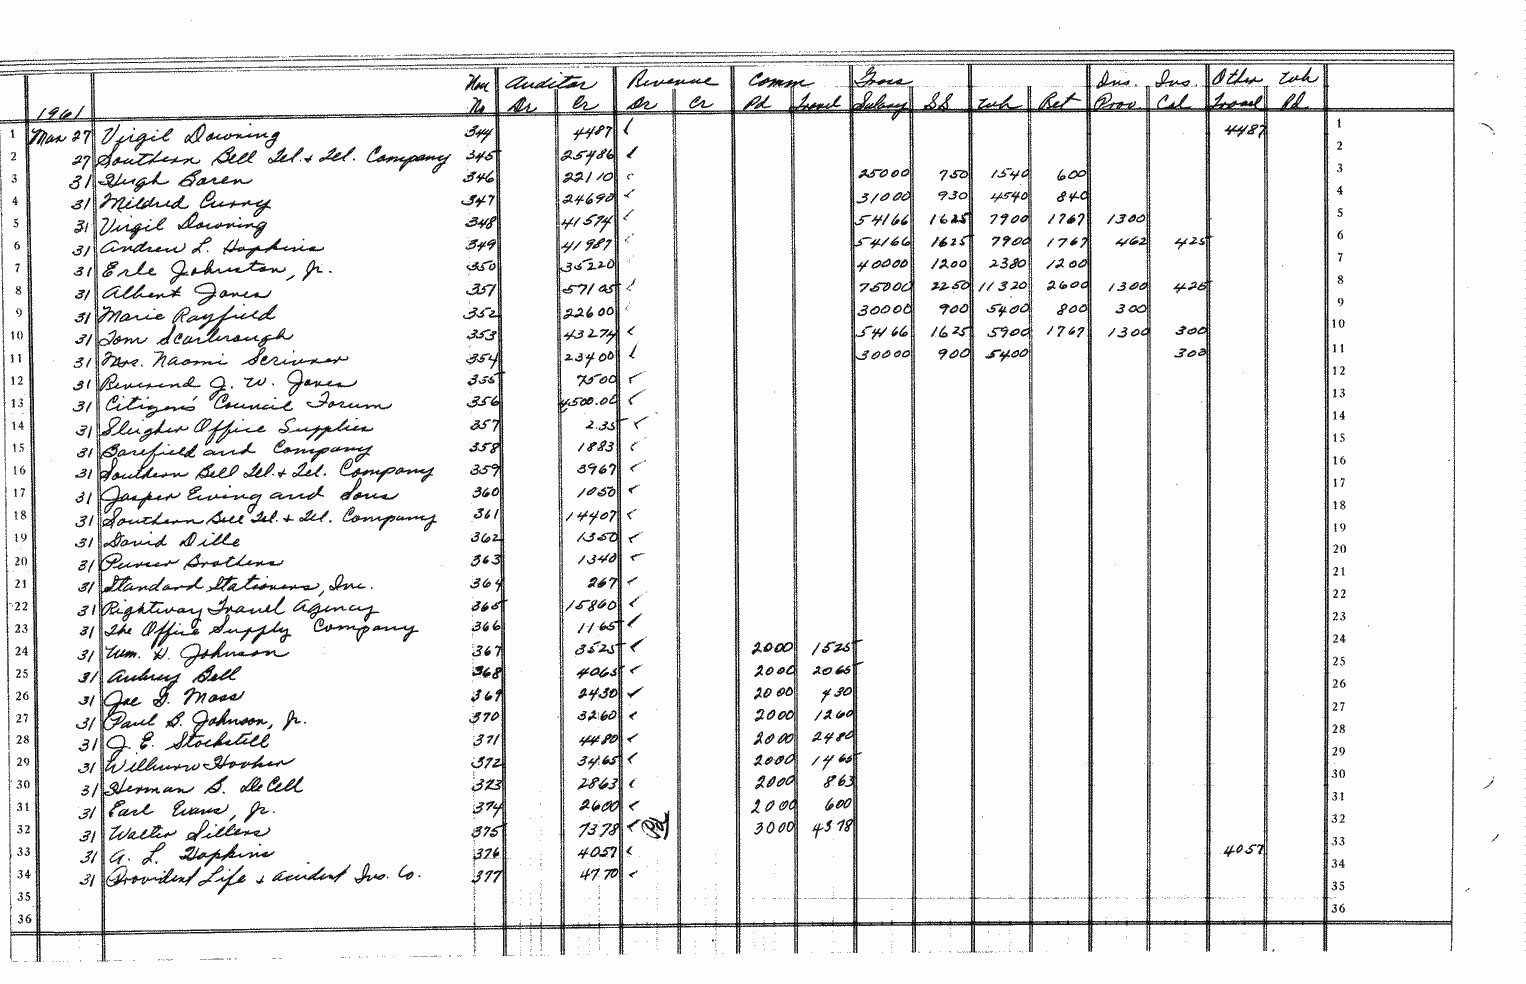 Nov Auditor Revenue Comm Gross Ins. Ins. Other Wh
1961 No Dr Cr Dr Cr Pd Travel Salary SS Wh Ret Prov. Cal Travel Pd
1 Mar 27 Virgil Downing 344 4487 ✓ 4487 1
2 27 Southern Bell Tel. & Tel. Company 345 25486 ✓ 2
3 31 Hugh Boren 346 22110 ✓ 25000 750 1540 600 3
4 31 Mildred Curry 347 24690 ✓ 31000 930 4540 840 4
5 31 Virgil Downing 348 41574 ✓ 54166 1625 7900 1767 1300 5
6 31 Andrew L. Hopkins 349 41987 ✓ 54166 1625 7900 1767 462 425 6
7 31 Erle Johnston, Jr. 350 35220 40000 1200 2380 1200 7
8 31 Albert Jones 351 57105 ✓ 75000 2250 11320 2600 1300 425 8
9 31 Marie Rayfield 352 22600 30000 900 5400 800 300 9
10 31 Tom Scarbrough 353 43274 ✓ 54166 1625 5900 1767 1300 300 10
11 31 Mrs. Naomi Scrivner 354 23400 ✓ 30000 900 5400 300 11
12 31 Reverend J. W. Jones 355 7500 ✓ 12
13 31 Citizen's Council Forum 356 4500.00 ✓ 13
14 31 Sleigher Office Supplies 357 2.35 ✓ 14
15 31 Barefield and Company 358 1883 ✓ 15
16 31 Southern Bell Tel. & Tel. Company 359 3967 ✓ 16
17 31 Jasper Ewing and Sons 360 1050 ✓ 17
18 31 Southern Bell Tel. & Tel. Company 361 14407 ✓ 18
19 31 David Dille 362 1350 ✓ 19
20 31 Purser Brothers 363 1340 ✓ 20
21 31 Standard Stationers, Inc. 364 267 ✓ 21
22 31 Rightway Travel Agency 365 15860 ✓ 22
23 31 The Office Supply Company 366 1165 ✓ 23
24 31 Wm. H. Johnson 367 3525 ✓ 2000 1525 24
25 31 Aubrey Bell 368 4065 ✓ 2000 2065 25
26 31 Joe G. Moss 369 2430 ✓ 2000 430 26
27 31 Paul B. Johnson, Jr. 370 3260 ✓ 2000 1260 27
28 31 J. E. Stockstill 371 4480 ✓ 2000 2480 28
29 31 Wilburn Hooker 372 3465 ✓ 2000 1465 29
30 31 Herman B. DeCell 373 2863 ✓ 2000 863 30
31 31 Earl Evans, Jr. 374 2600 ✓ 2000 600 31
32 31 Walter Sillers 375 7378 ✓ Pd 3000 4378 32
33 31 A. L. Hopkins 376 4057 ✓ 4057 33
34 31 Provident Life & Accident Ins. Co. 377 4770 ✓ 34
35 35
36 36